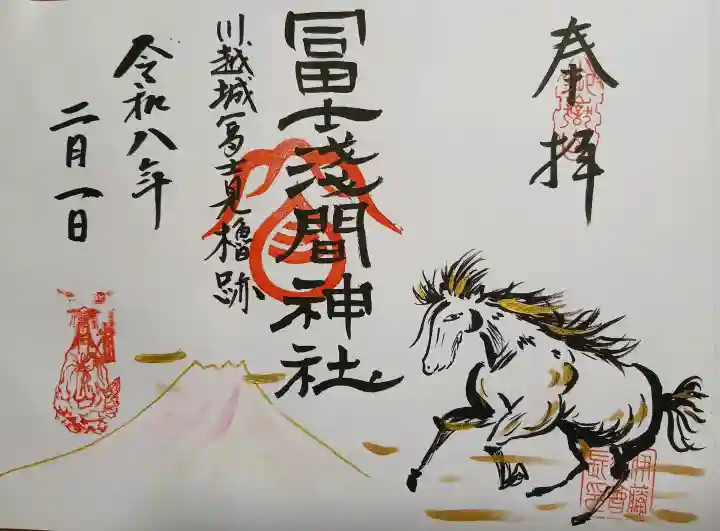 奉拝
冨士浅間神社
川越城富士見櫓跡
令和八年
二月一日
伊藤